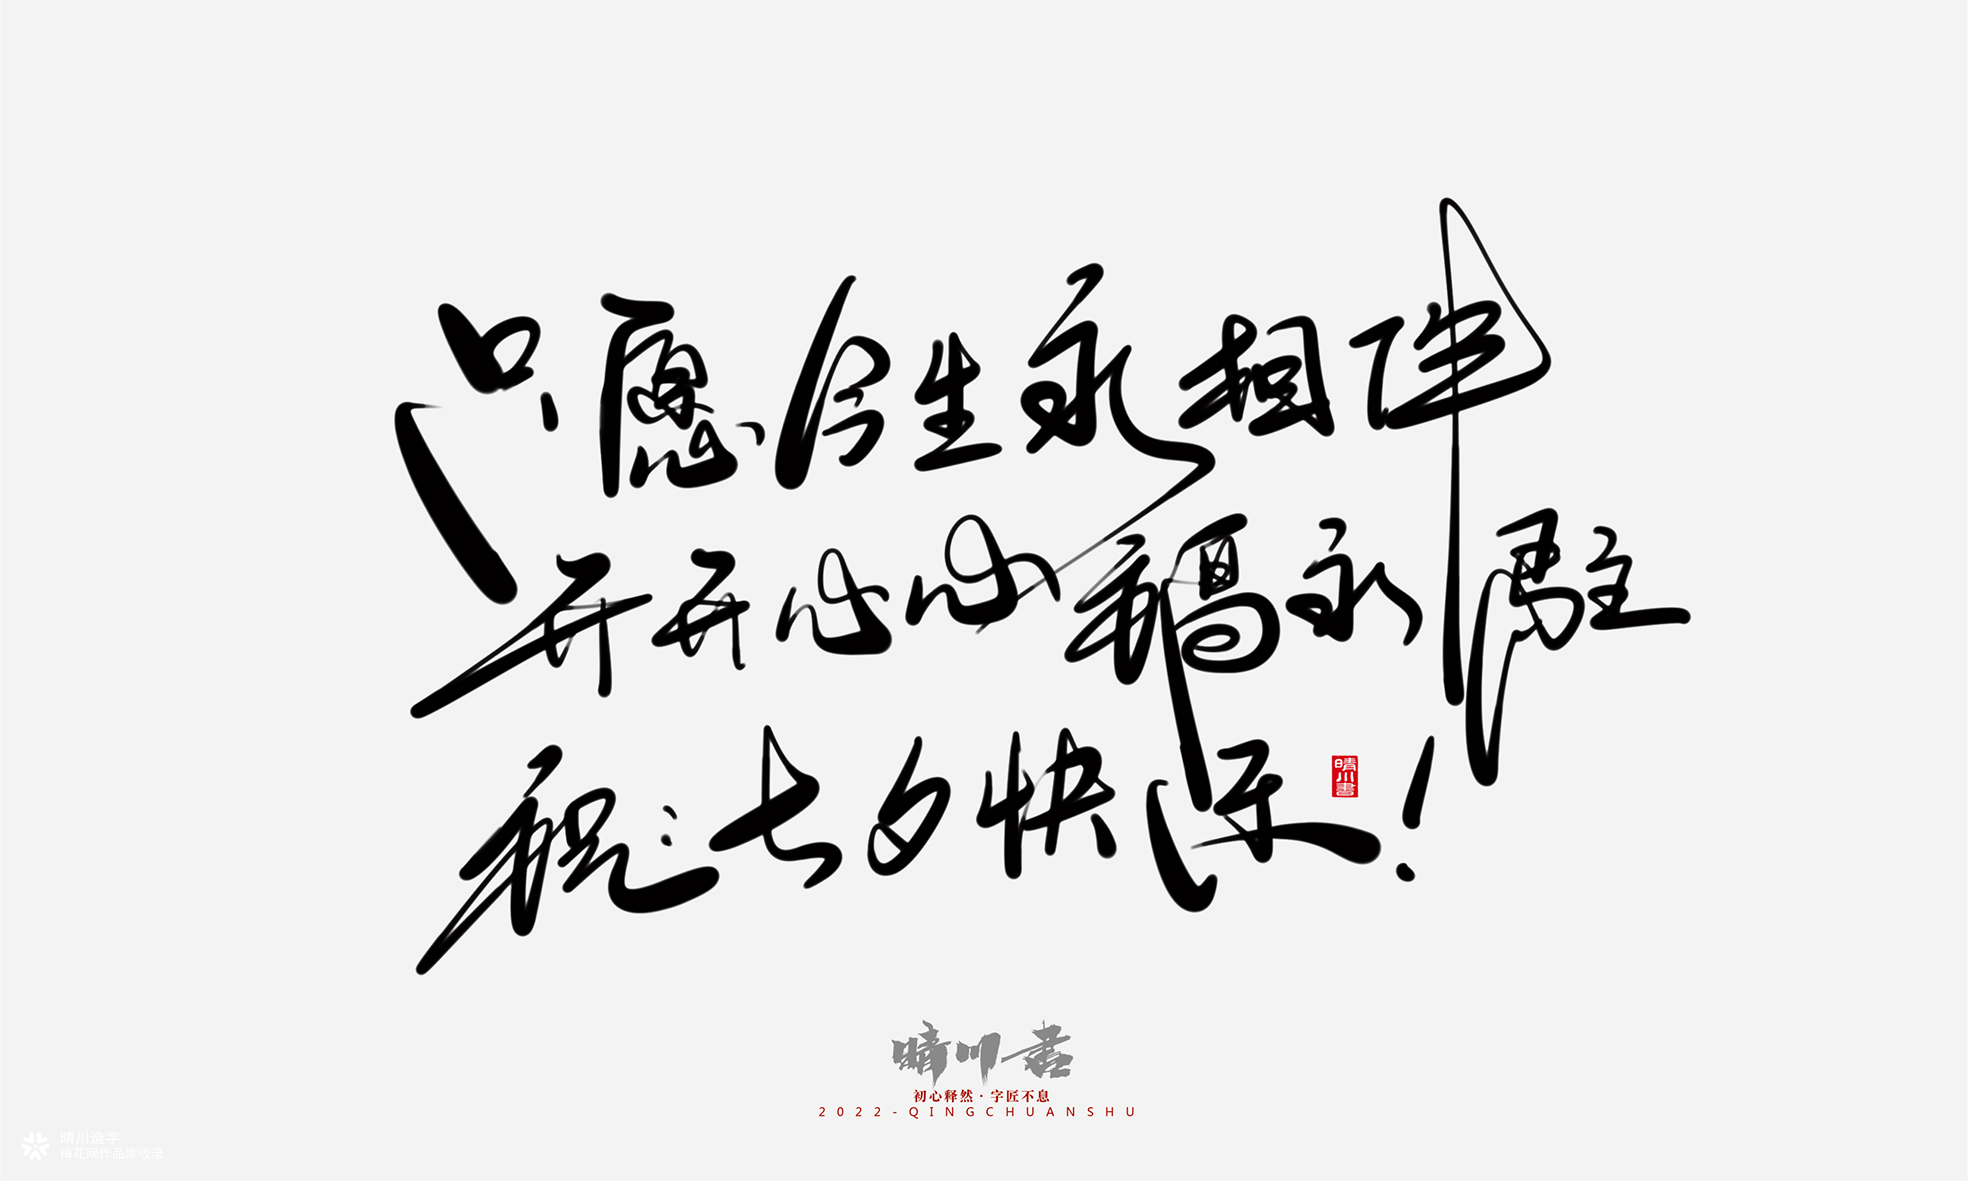 只愿今生永相伴
开开心心福永驻
祝:七夕快乐!
晴川書
晴川书
初心释然·字匠不息
2022-QINGCHUANSHU
晴川造字
梅花网作品库收录